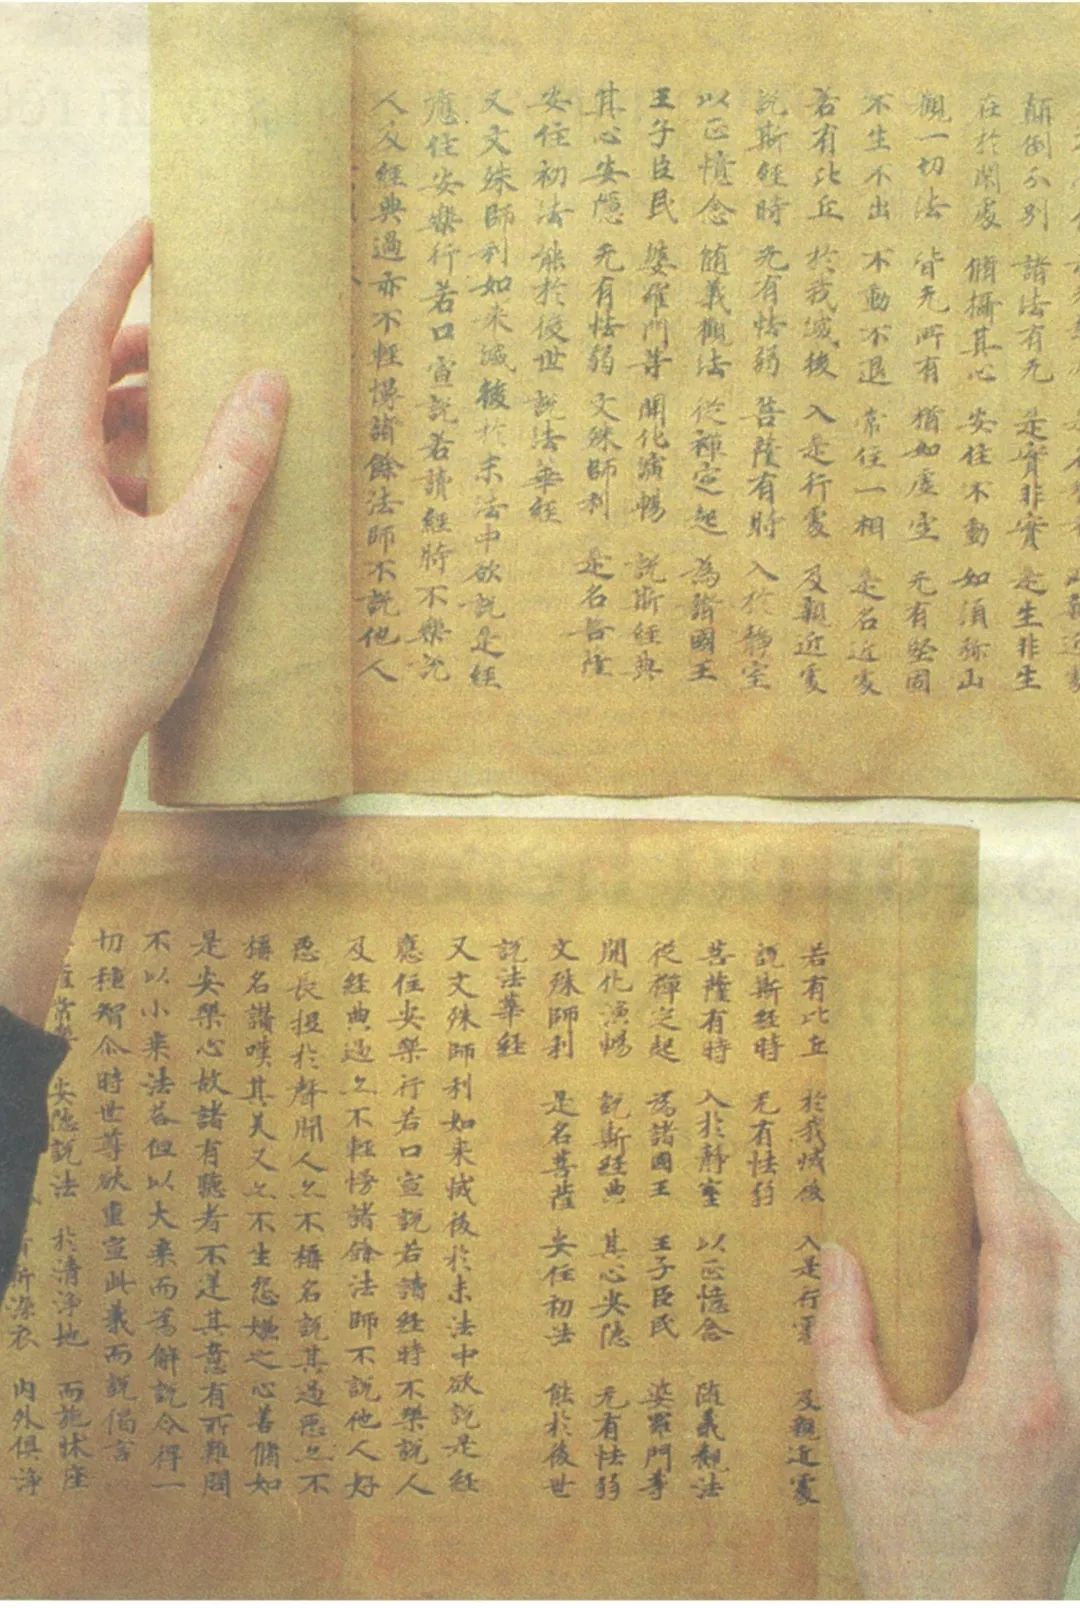 顛倒分別 諸法有无 是實非實 是生非生
在於閑處 脩攝其心 安住不動 如須弥山
觀一切法 皆无所有 猶如虛空 无有堅固
不生不出 不動不退 常住一相 是名近處
若有比丘 於我滅後 入是行處 及親近處
說斯經時 无有怯弱 菩薩有時 入於靜室
以正憶念 隨義觀法 從禪定起 為諸國王
王子臣民 婆羅門等 開化演暢 說斯經典
其心安隱 无有怯弱 文殊師利 是名菩薩
安住初法 能於後世 說法華經
又文殊師利如來滅後於末法中欲說是經
應住安樂行若口宣說若讀經時不樂說
人及經典過亦不輕慢諸餘法師不說他人
若有比丘 於我滅後 入是行處 及親近處
說斯經時 无有怯弱
菩薩有時 入於靜室 以正憶念 隨義觀法
從禪定起 為諸國王 王子臣民 婆羅門等
開化演暢 說斯經典 其心安隱 无有怯弱
文殊師利 是名菩薩 安住初法 能於後世
說法華經
又文殊師利如來滅後於末法中欲說是經
應住安樂行若口宣說若讀經時不樂說人
及經典過亦不輕慢諸餘法師不說他人好
惡長短於聲聞人亦不稱名說其過惡亦不
稱名讚嘆其美又亦不生怨嫌之心善脩如
是安樂心故諸有聽者不逆其意有所難問
不以小乘法答但以大乘而為解說令得一
切種智尒時世尊欲重宣此義而說偈言
常樂 安隱說法 於清淨地 而施牀座
衣 內外俱淨